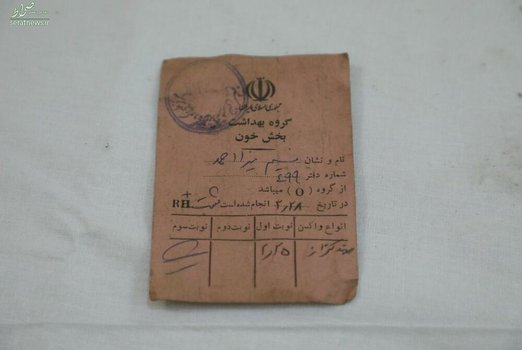 صراط
seratnews.ir
جمهوری اسلامی ایران
گروه بهداشت
بخش خون
نام و نشان
شماره دفتر ۴۹۹
از گروه (O) میباشد
در تاریخ ۲ر۲۸ انجام شده است مثبت RH+
انواع واکسن نوبت اول نوبت دوم نوبت سوم
ضد کزاز ۲ر۱۵